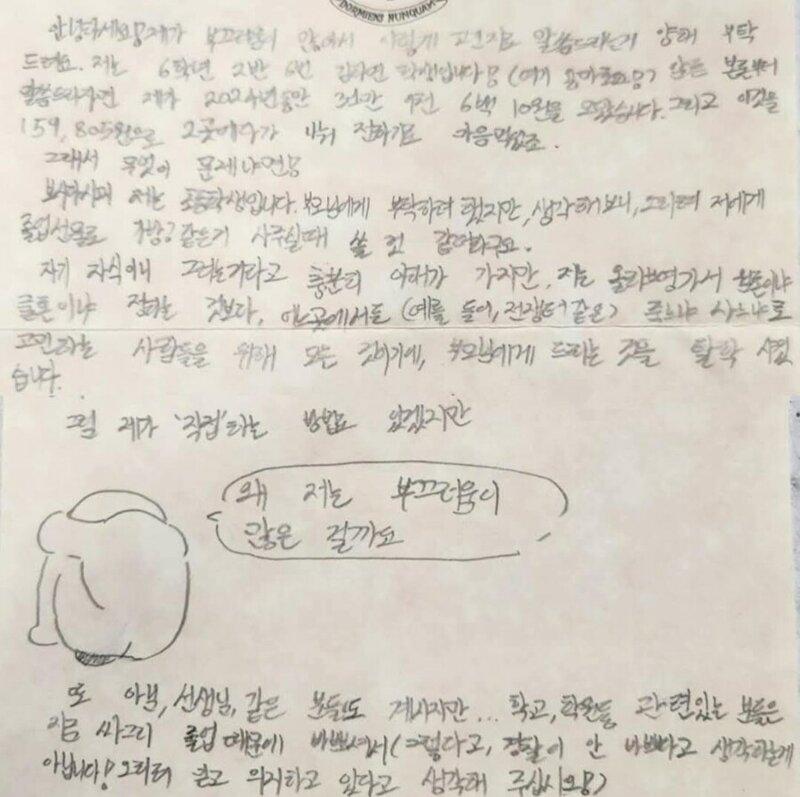 DORMIENS NUNQUAM
안녕하세요? 제가 부끄러움이 많아서 이렇게 고런지로 말씀드리는거 양해 부탁
드려요. 저는 6학년 2반 6번 학생입니다 (여기 아 요) 일단 본론부터
말씀드리자면 제가 2024년동안 3 9천 6백 10원을 모았습니다. 그리고 이것을
159,805원으로 2곳에다가 나눠 기로 마음먹었죠.
그래서 무엇이 문제냐면
보시다시피 저는 초등학생입니다. 부모님에게 부탁하려 했지만, 생각해보니, 그러면 저에게
졸업선물로 가방 같은거 사주실때 쓸 것 같더라구요.
자기 자식이니 그러는거라고 충분히 이해가 가지만, 저는 올리브영가서
이냐 하는 것보다, 곳에서든 (예를 들어, 전쟁터 같은) 죽느냐 사느냐로
고민하는 사람들을 위해 모은 것이기에, 부모님에게 드리는 것을 탈락 시켰
습니다.
그럼 제가 '직접' 하는 방법도 있겠지만
왜 저는 부끄러움이
많은 걸까요
또 이 , 선생님, 같은 분들도 계시지만... 학교, 학원등 관련있는 분들은
지금 싸그리 졸업 때문에 바쁘셔서 (그렇다고, 경찰이 안 바쁘다고 생각하는게
아닙니다! 그러니 믿고 의지하고 있다고 생각해 주십시오)